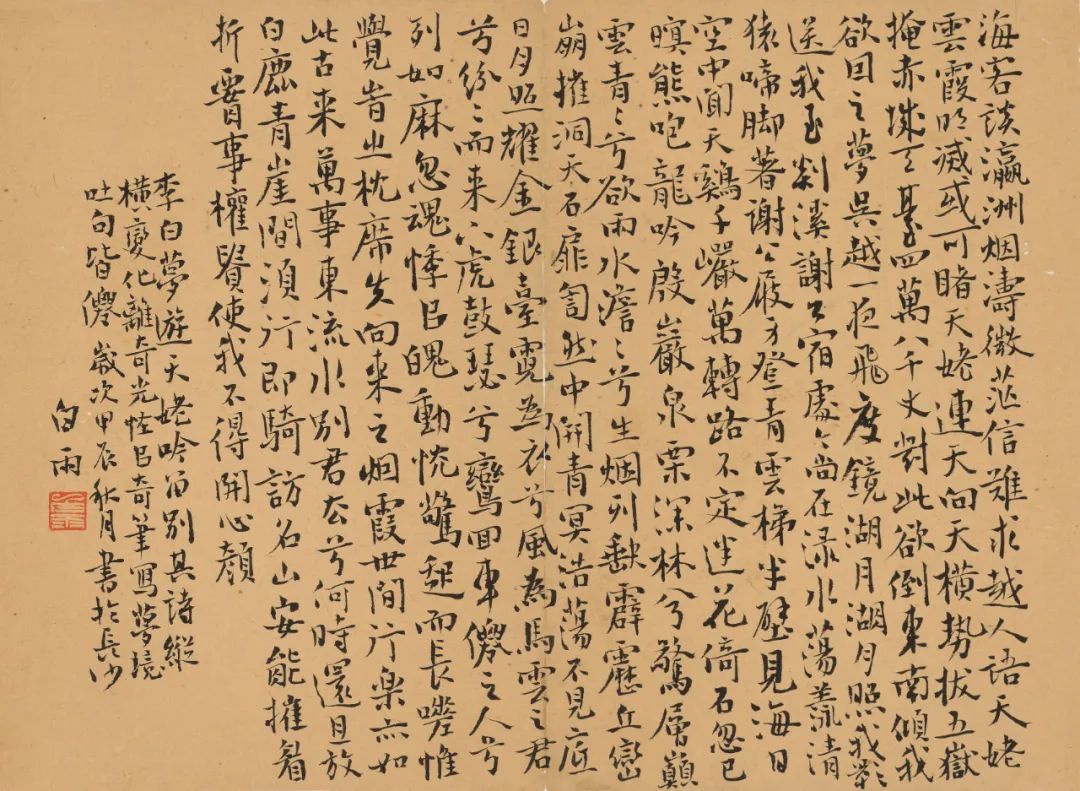 海客談瀛洲烟濤微茫信難求越人語天姥
雲霞明滅或可睹天姥連天向天橫勢拔五嶽
掩赤城天臺四萬八千丈對此欲倒東南傾我
欲因之夢吳越一夜飛度鏡湖月湖月照我影
送我至剡溪謝公宿處今尚在淥水蕩漾清
猿啼脚著謝公屐身登青雲梯半壁見海日
空中聞天鷄千巖萬轉路不定迷花倚石忽已
暝熊咆龍吟殷巖泉栗深林兮驚層巔
雲青〻兮欲雨水澹〻兮生烟列缺霹靂丘巒
崩摧洞天石扉訇然中開青冥浩蕩不見底
日月照耀金銀臺霓為衣兮風為馬雲之君
兮紛〻而来下虎鼓瑟兮鸞回車僊之人兮
列如麻忽魂悸以魄動怳驚起而長嗟惟
覺時之枕席失向来之烟霞世間行樂亦如
此古来萬事東流水別君去兮何時還且放
白鹿青崖間須行即騎訪名山安能摧眉
折腰事權貴使我不得開心顔
李白夢遊天姥吟留別其詩縱
橫變化離奇光怪以奇筆寫夢境
吐句皆僊歲次甲辰秋月書於長沙
白雨